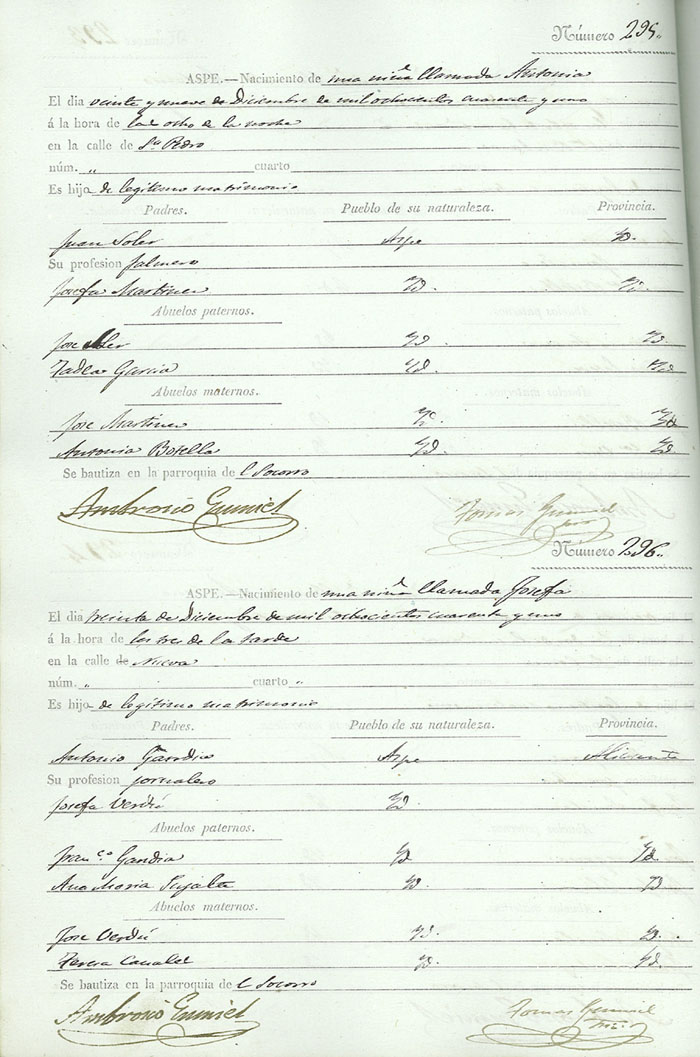 Número 295.
ASPE.—Nacimiento de una niña llamada Antonia
El dia veinte y nueve de Diciembre de mil ochocientos cuarenta y uno
á la hora de las ocho de la noche
en la calle de Sn Pedro
núm. „ cuarto
Es hija de legitimo matrimonio
Padres. Pueblo de su naturaleza. Provincia.
Juan Soler Aspe Yd.
Su profesion
Josefa Martinez Yd. Yd.
Abuelos paternos.
Jose Soler Yd Yd
Tadea Garcia Yd. Yd
Abuelos maternos.
Jose Martinez Yd Yd
Antonia Botella Yd. Yd
Se bautiza en la parroquia de l Socorro
Ambrosio Gumiel Tomas Gumiel
Número 296.
ASPE.—Nacimiento de una niña llamada Josefa
El dia treinta de Diciembre de mil ochocientos cuarenta y uno
á la hora de las tres de la tarde
en la calle de Nueva
núm. „ cuarto „
Es hija de legitimo matrimonio
Padres. Pueblo de su naturaleza. Provincia.
Antonio Gandia Aspe Alicante
Su profesion jornalero
Josefa Verdú Yd.
Abuelos paternos.
Franco Gandia Yd Yd.
Ana Maria Yd. Yd
Abuelos maternos.
Jose Verdú Yd. Yd.
Teresa Yd. Yd.
Se bautiza en la parroquia de l Socorro
Ambrosio Gumiel Tomas Gumiel